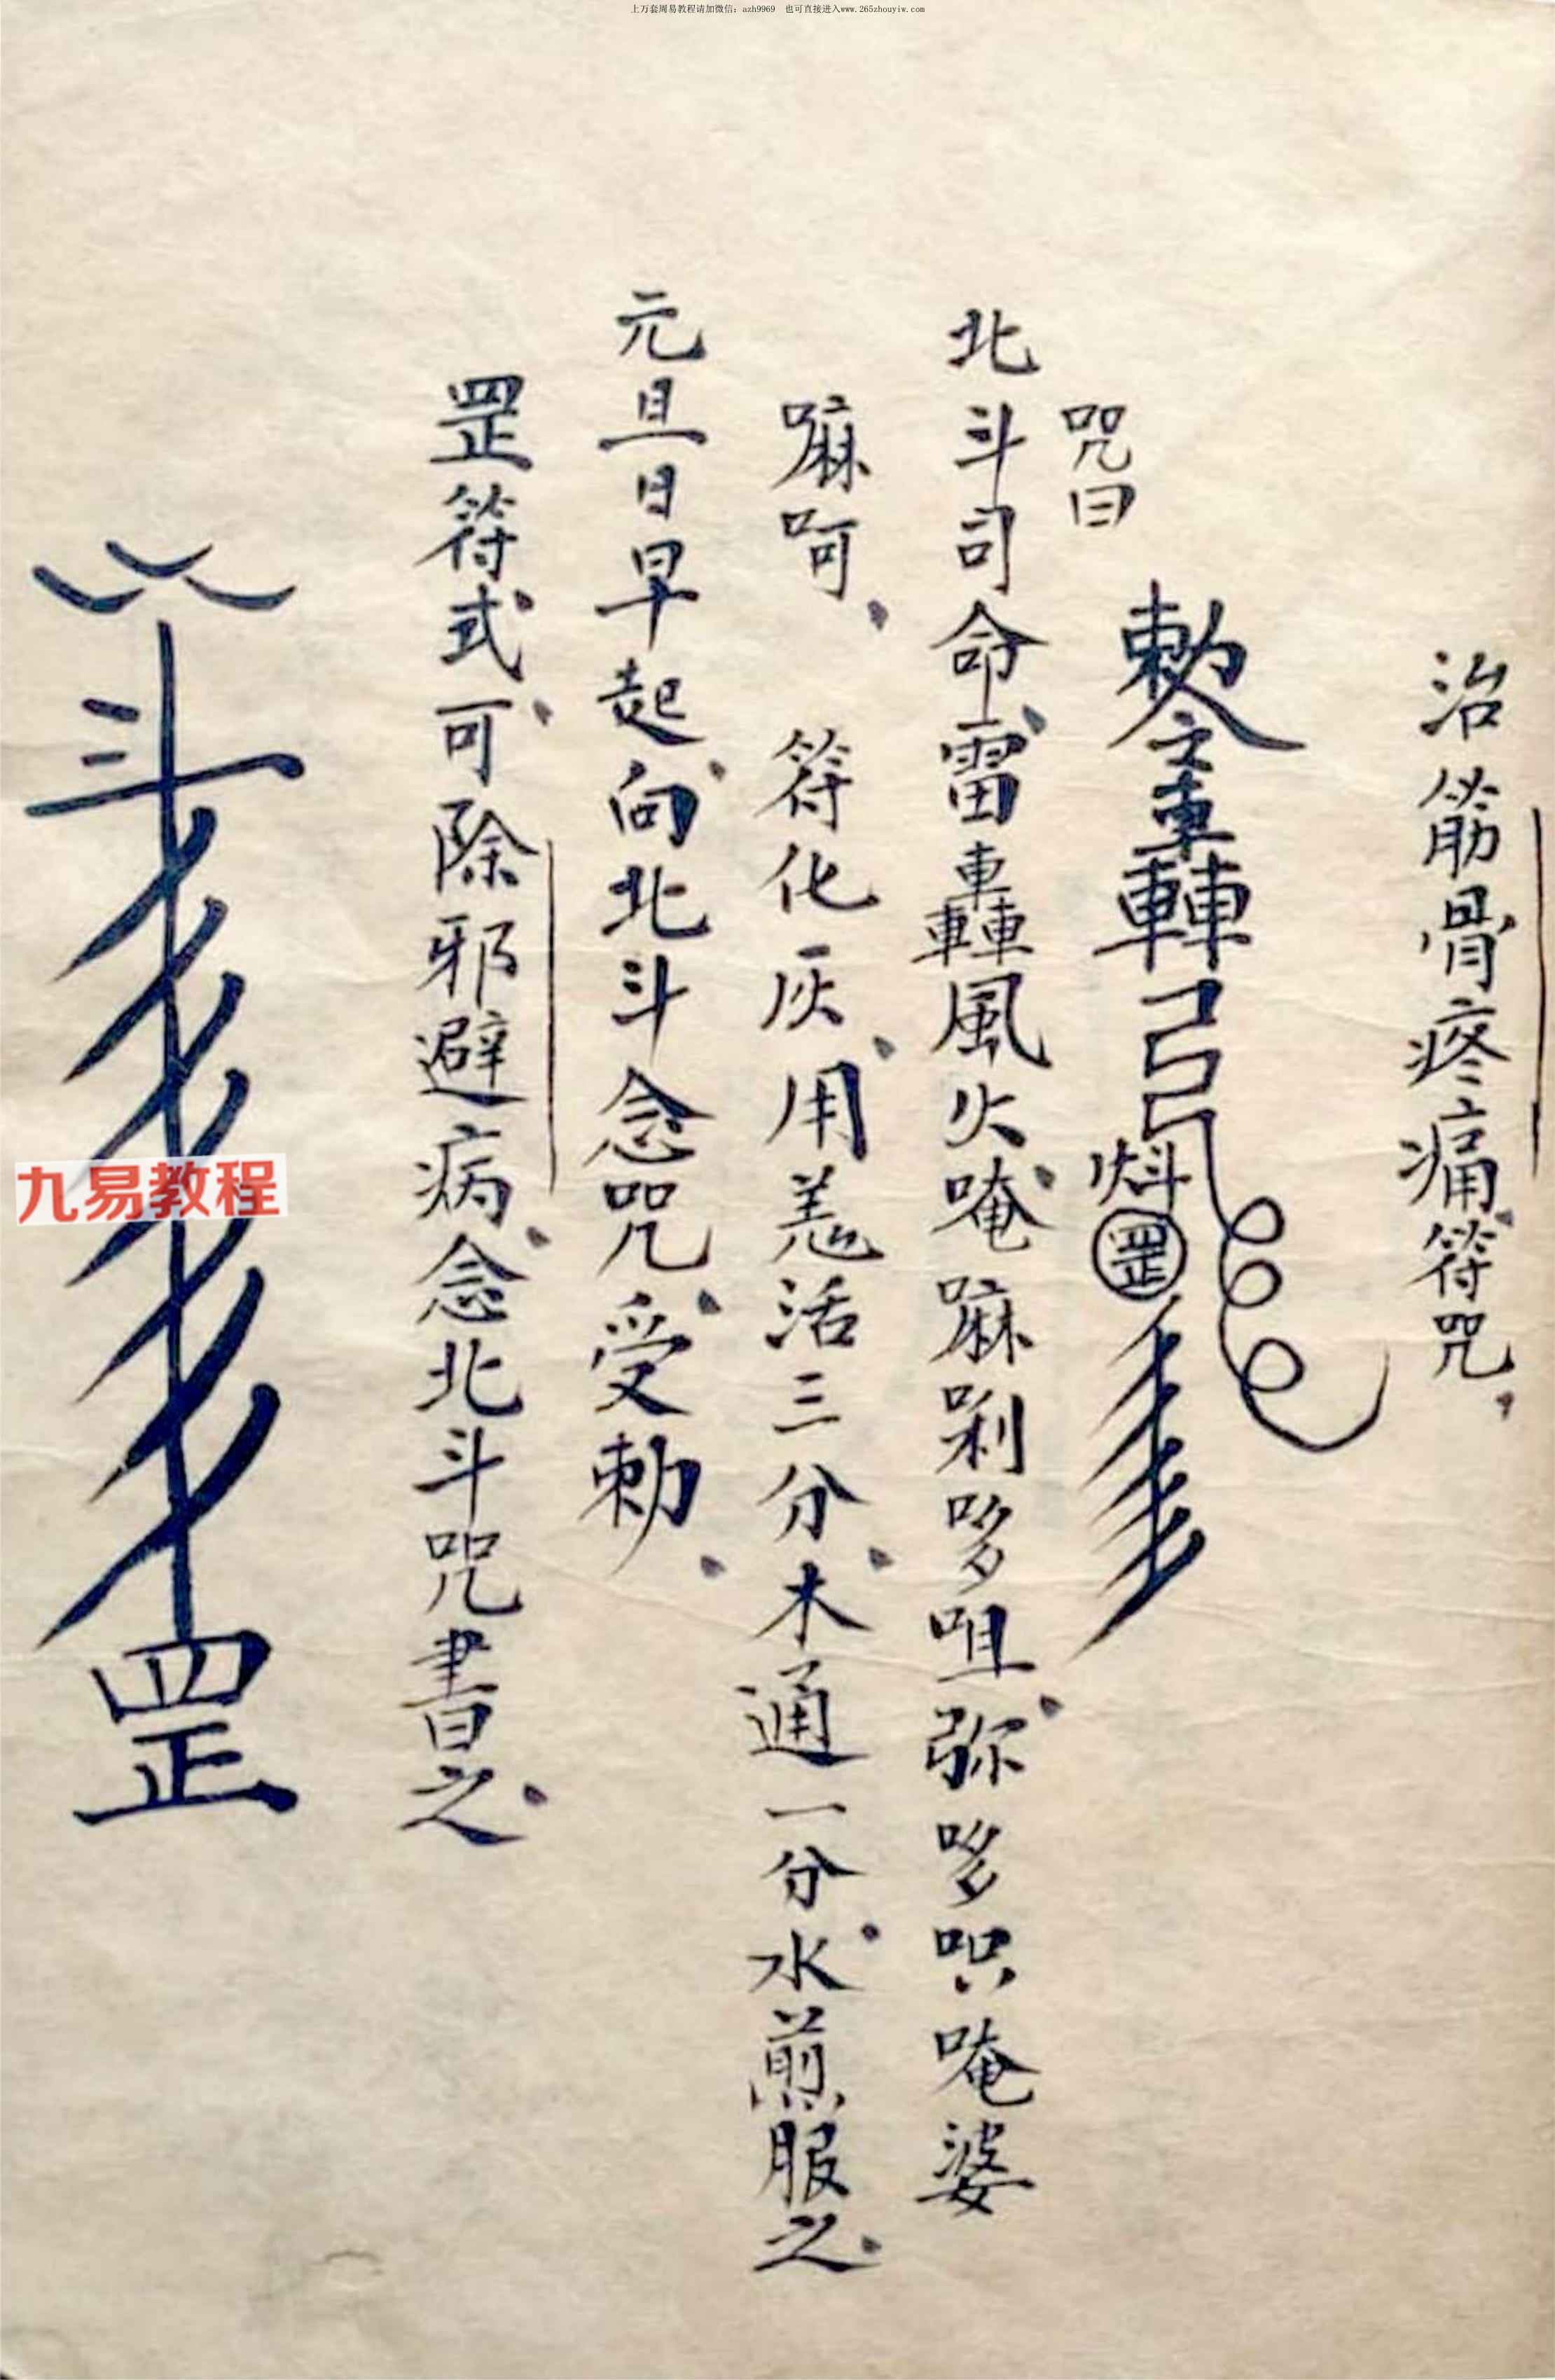 上万套周易教程请加微信：azh9969　也可直接进入www.265zhouyiw.com
治筋骨疼痛符咒
勅令
罡
咒曰
北斗司命雷轟風火唵嘛唎哆咀弥哆呮唵婆
嘛呵　符化灰用羗活三分木通一分水煎服之
元旦日早起向北斗念咒受勅
罡符式可除邪避病念北斗咒書之
斗
罡
九易教程